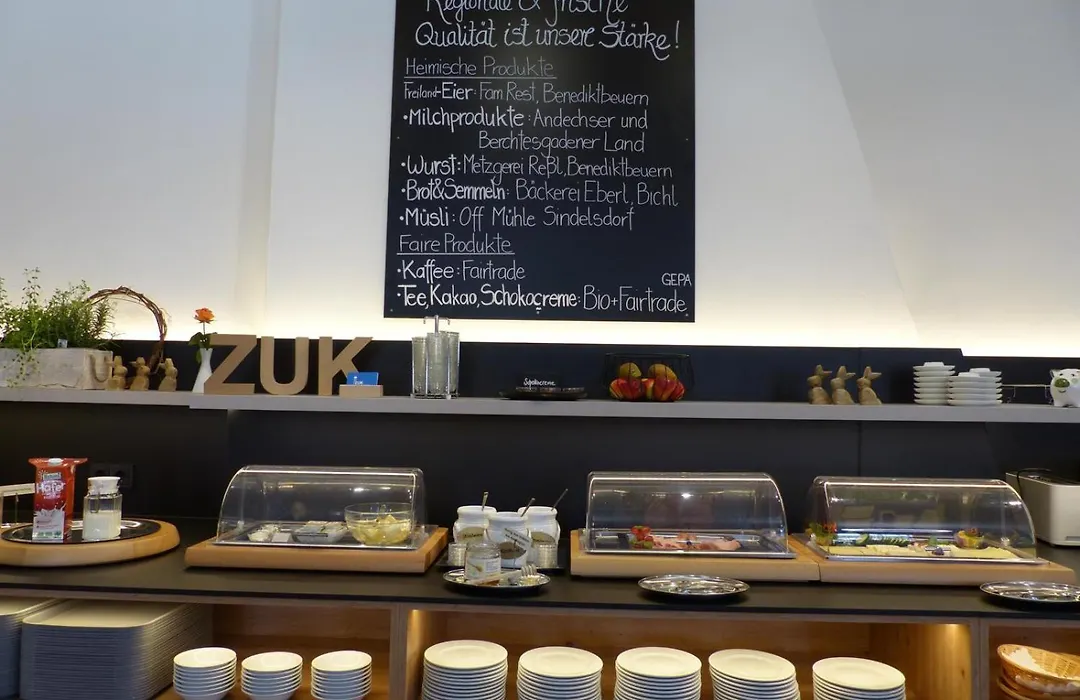 Regionale & frische
Qualität ist unsere Stärke!
Heimische Produkte
Freiland-Eier: Fam Rest, Benediktbeuern
•Milchprodukte: Andechser und
Berchtesgadener Land
•Wurst: Metzgerei Reßl, Benediktbeuern
•Brot&Semmeln: Bäckerei Eberl, Bichl
•Müsli: Off Mühle Sindelsdorf
Faire Produkte
•Kaffee: Fairtrade
GEPA
•Tee, Kakao, Schokocreme: Bio+Fairtrade
ZUK
Schokocreme
Hafer